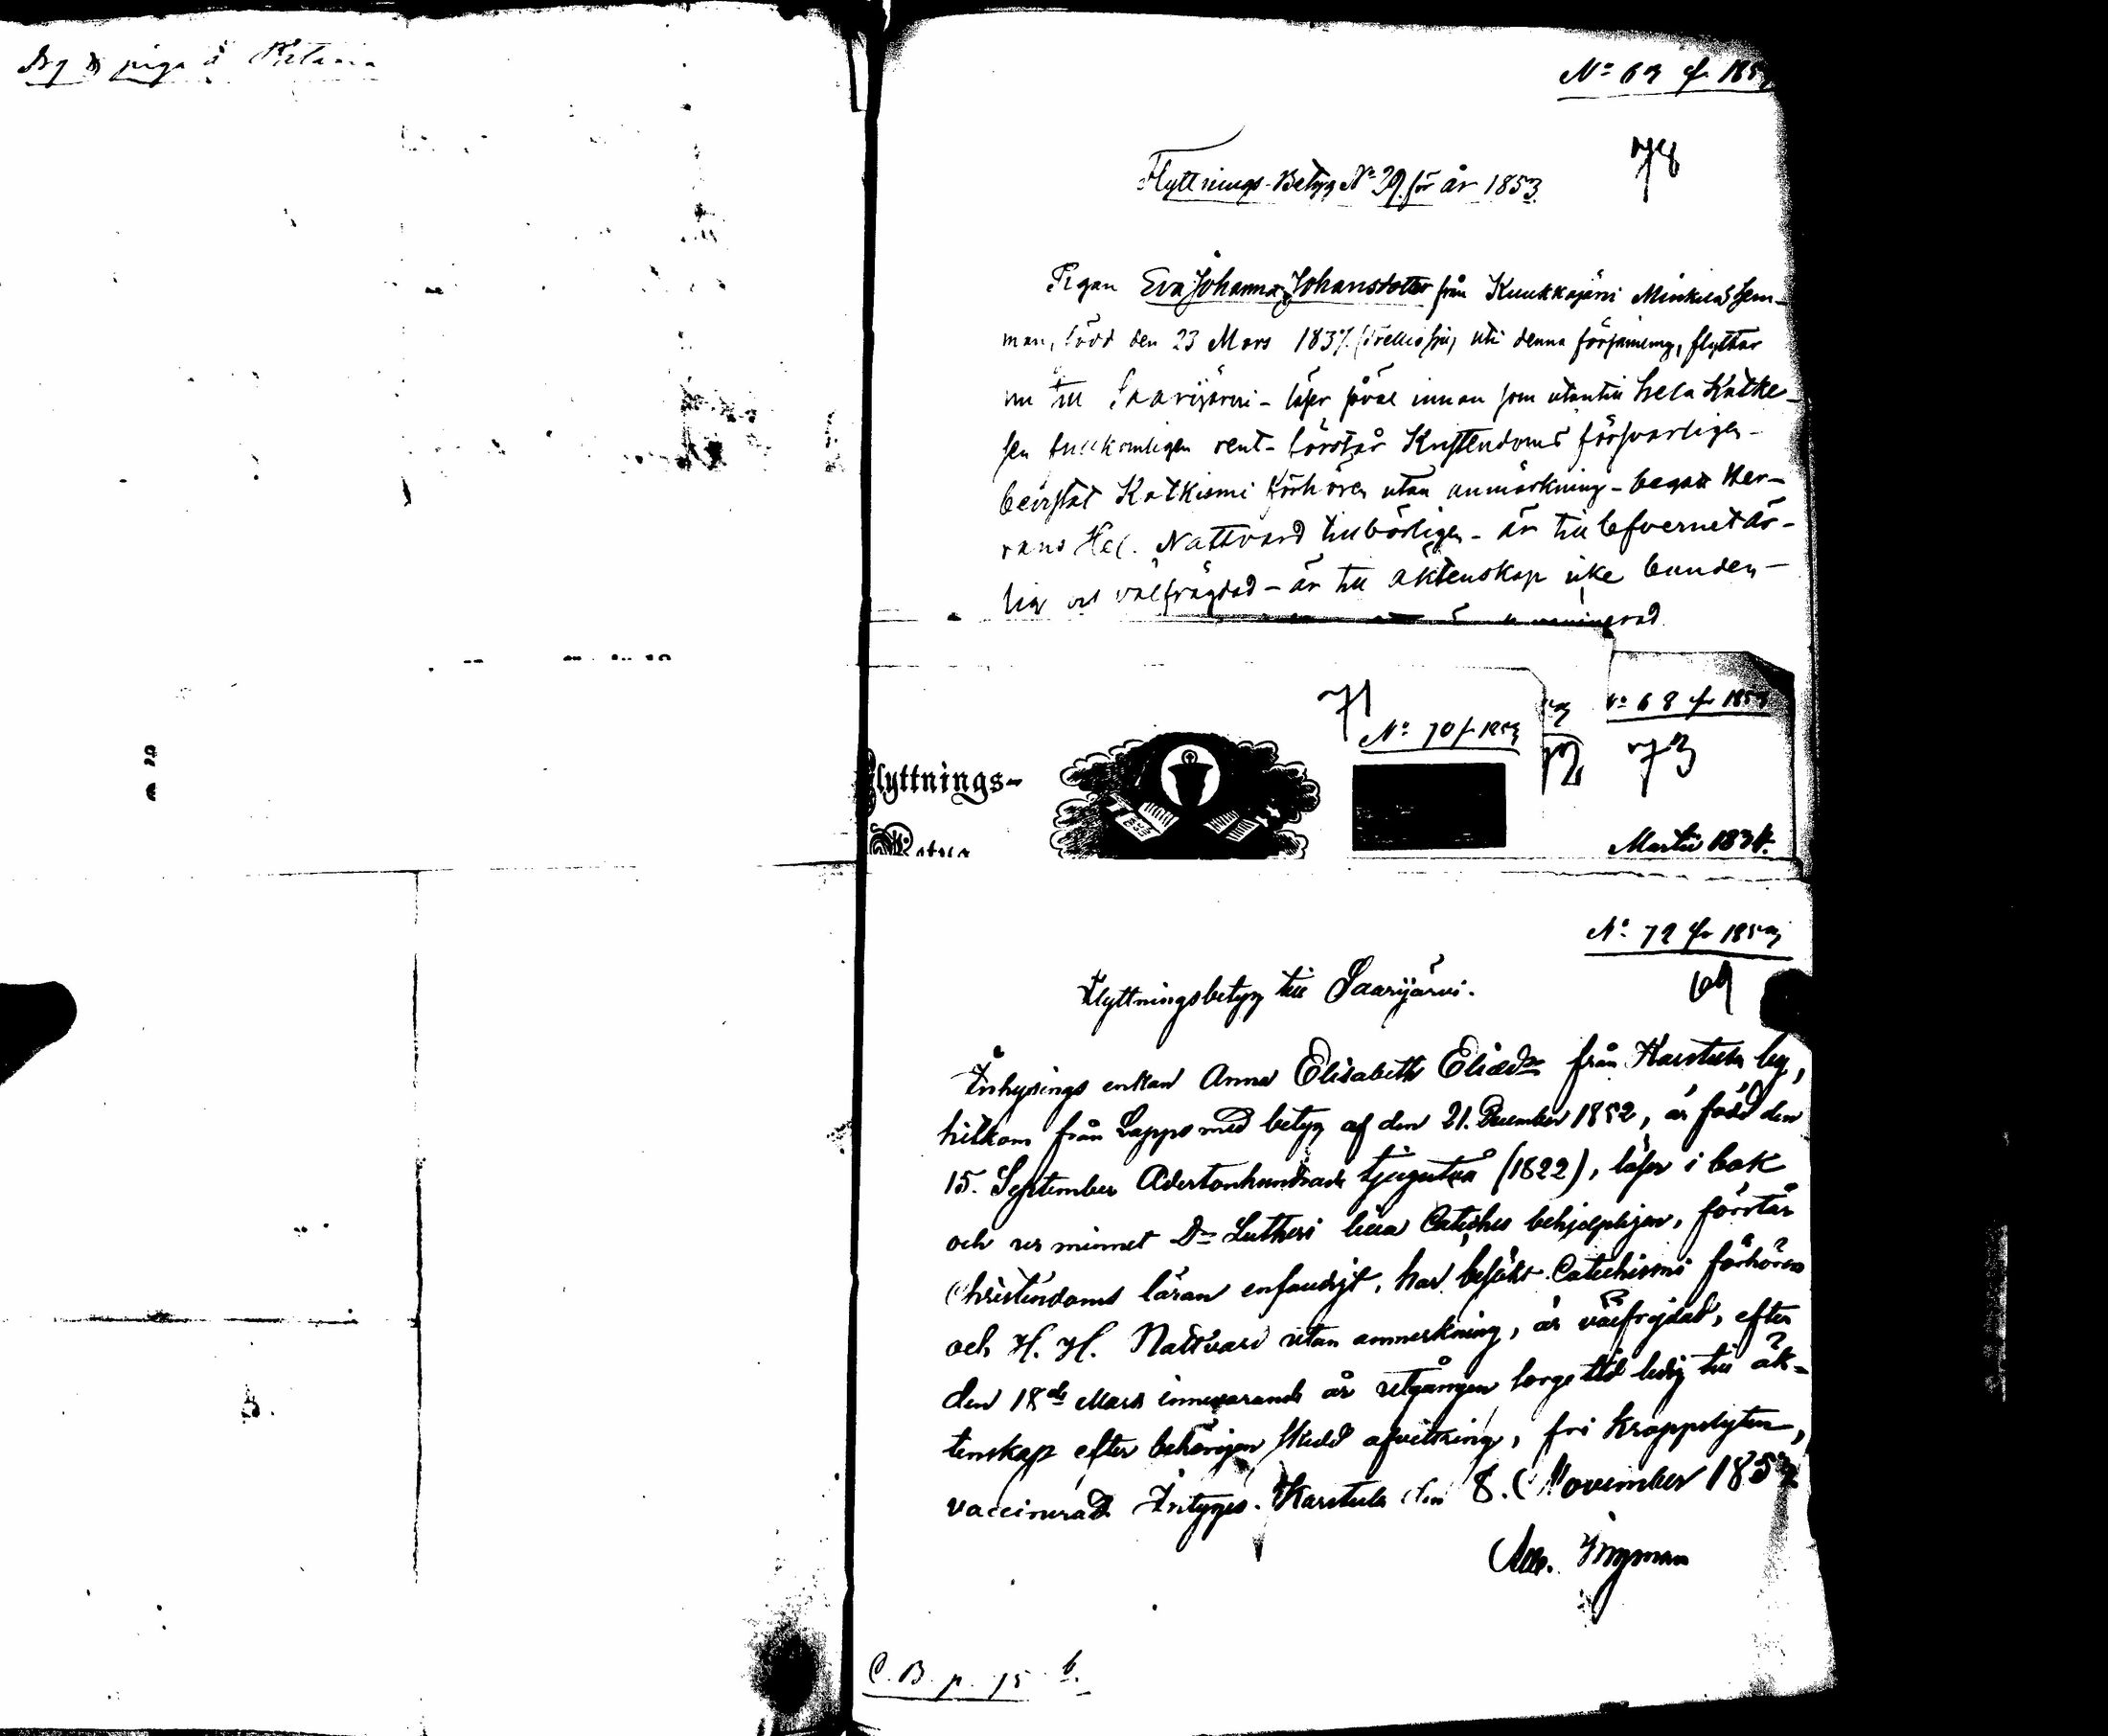 piga å
No 63 f. 1853
78
Flyttnings-Betyg No 29 för år 1853
Pigan Eva Johanna Johansdotter från Kuukkajärvi Minkilä Hem-
man, född den 23 Mars 1837 uti denna församling, flyttar
nu till Saarijärvi - läser såväl innan som utantill hela Katke-
sen fullkomligen rent - förstår Kristendomen försvarligen -
bevistat Katkismi förhören utan anmärkning - begått Her-
rans Hel. Nattvard tillbörligen - är till lefvernet är-
lig och välfrägdad - är till äktenskap icke bunden -
71
No 70 f. 1853
No 68 f. 1853
72
73
Flyttnings-
Betyg
Martii 1834.
No 72 f. 1853
69
Flyttningsbetyg till Saarijärvi.
Inhysings enkan Anna Elisabeth Eliædr från Karstula by,
hitkom från Lappo med betyg af den 21. December 1852, är född den
15. September Adertonhundrade tjugutvå (1822), läser i bok
och ur minnet Dr Lutheri lilla Catches behjelpligen, förstår
Christendoms läran enfaldigt, har besökt Catechismi förhören
och H. H. Nattvard utan anmerkning, är välfrejdad, efter
den 18de Mars innevarande år utgången sorge tid ledig till äk-
tenskap efter behörigen skedd afvittring, fri kroppslyten,
vaccinerad. Intygas. Karstula den 8. November 1853
Ingman
C. B. p. 15 b.